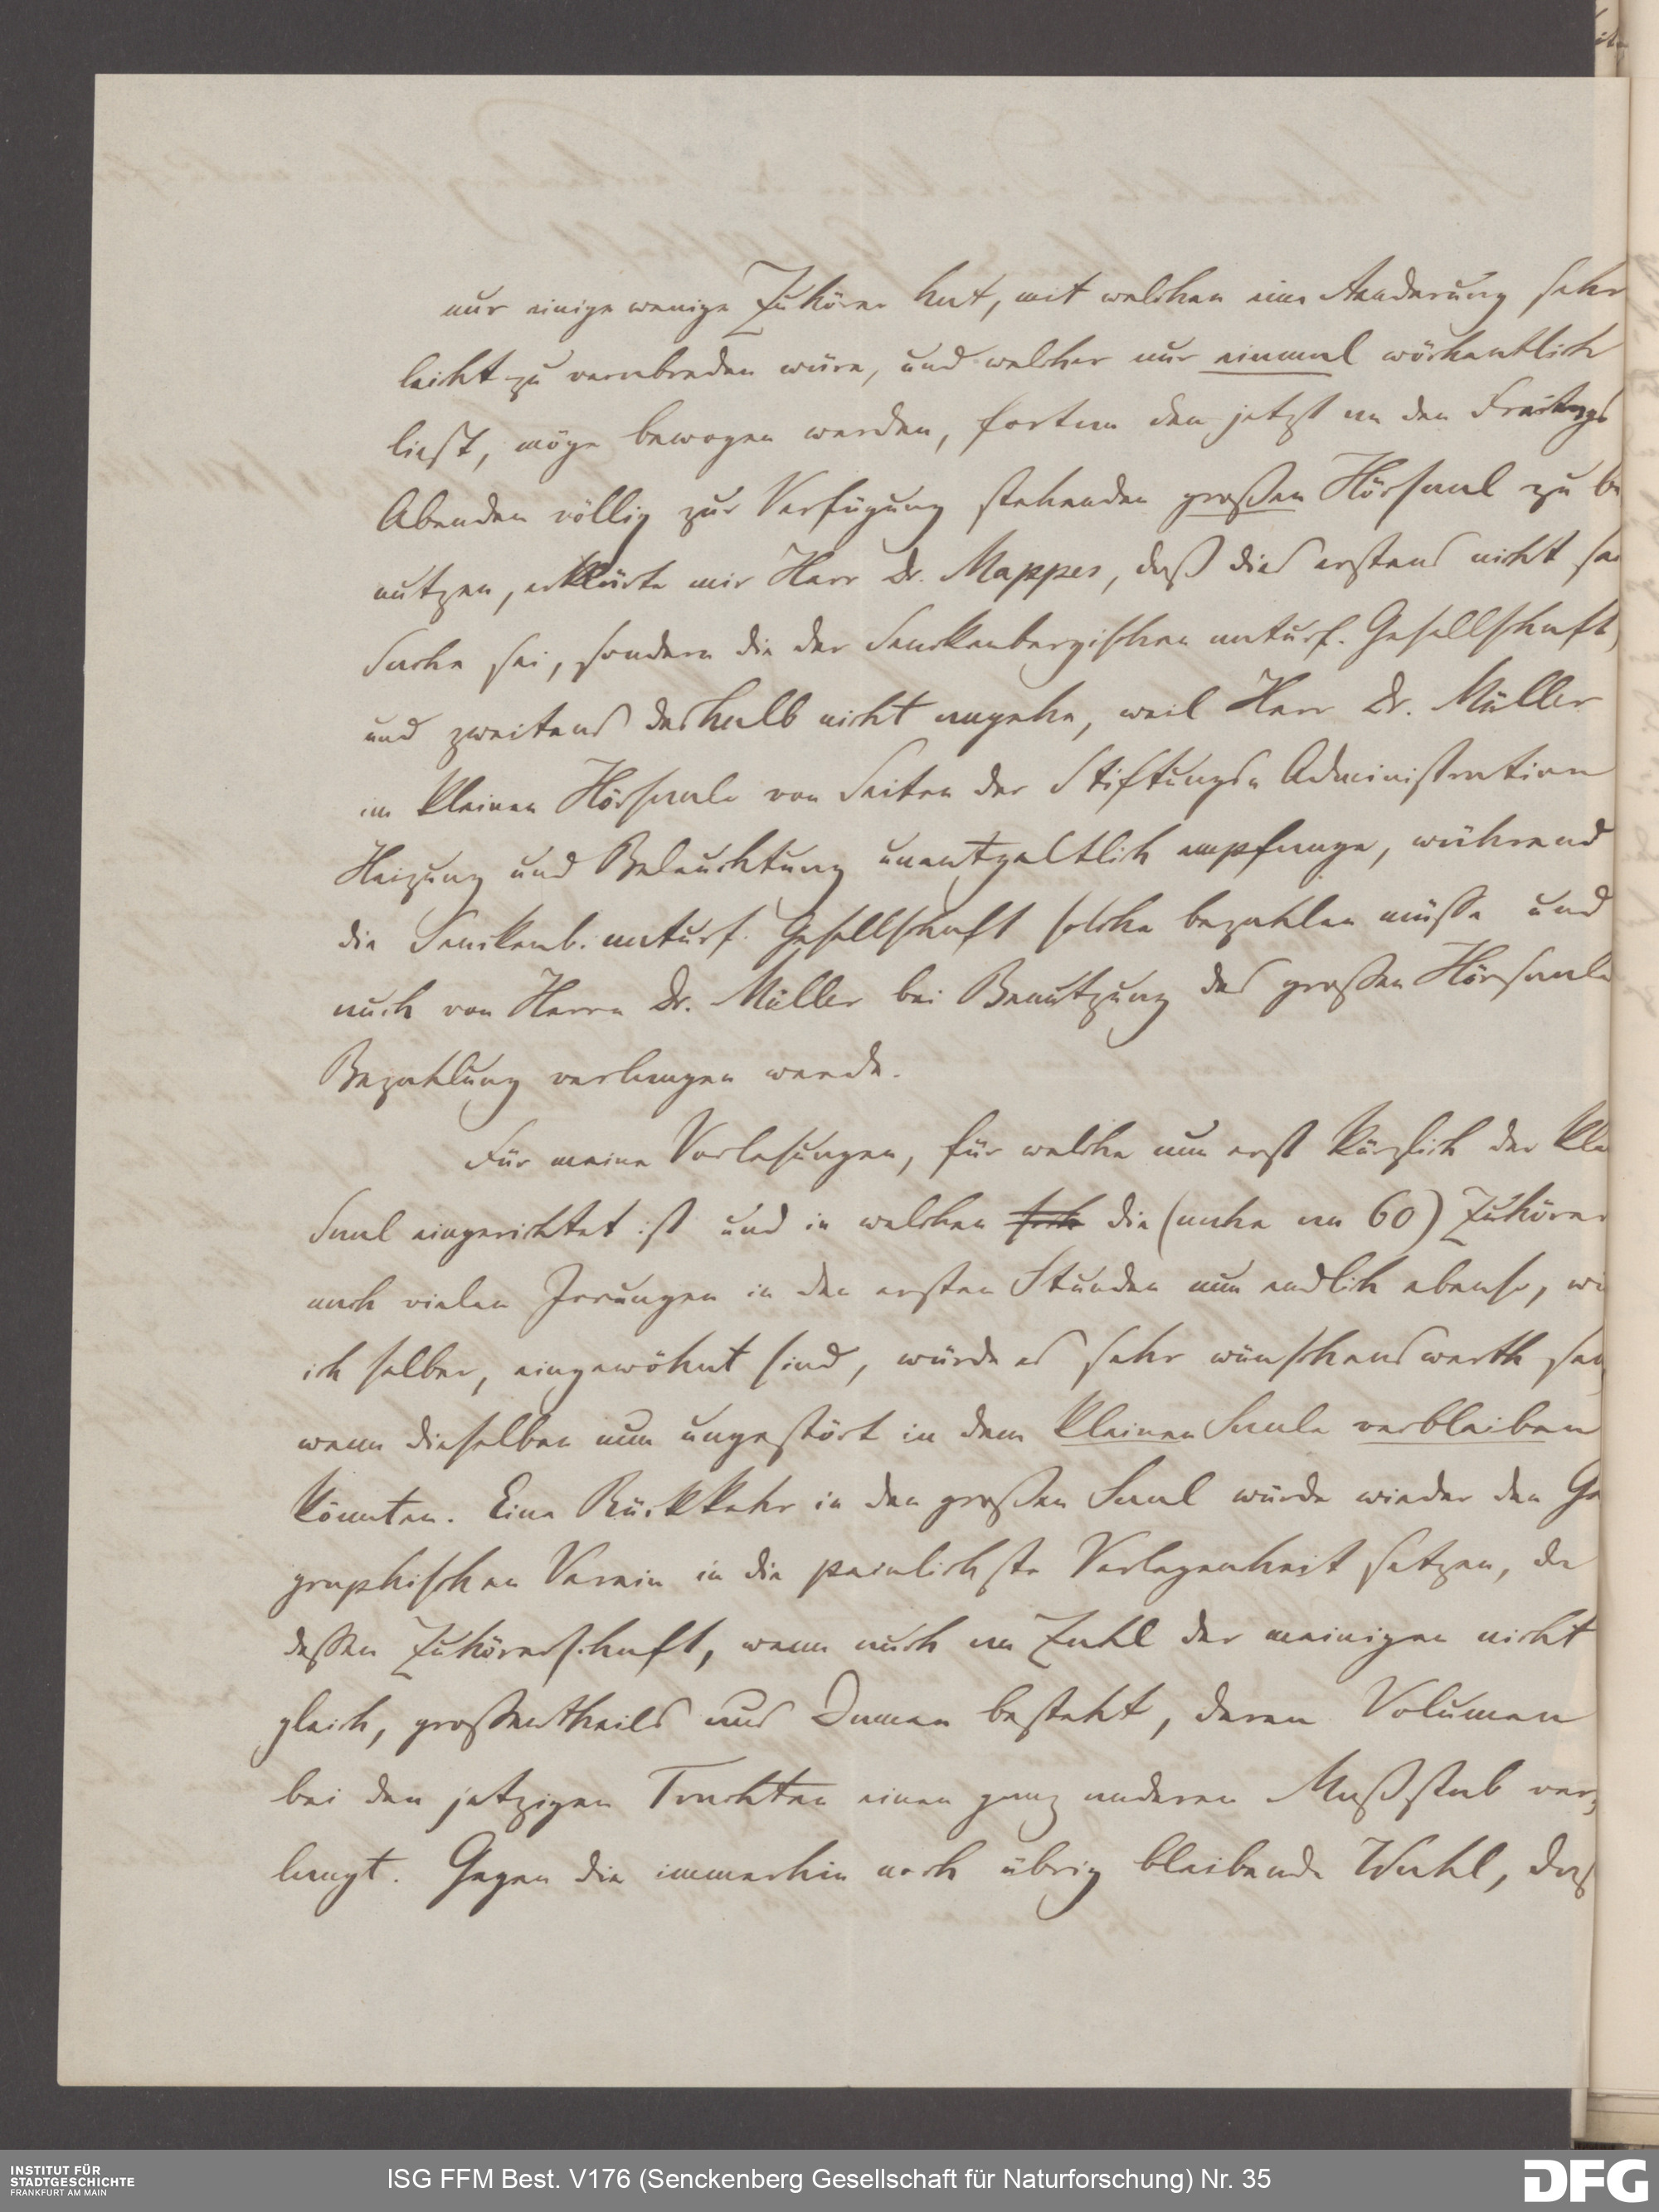 nur einige wenige Zuhörer hat, mit welchen eine Aenderung sehr
leicht zu verabreden wäre, und welcher nur einmal wöchentlich
liest, möge bewogen werden, fortan den jetzt an den Freitags
Abenden völlig zur Verfügung stehenden großen Hörsaal zu be
nutzen, erklärte mir Herr Dr. Mappes, daß dies erstens nicht sei
Sache sei, sondern die der Senckenbergischen naturf. Gesellschaft,
und zweitens deshalb nicht angehe, weil Herr Dr. Müller
im kleinen Hörsaale von Seiten der Stiftungs-Administration
Heizung und Beleuchtung unentgeltlich empfange, während
die Senckenb. naturf. Gesellschaft solche bezahlen müsse und
auch von Herrn Dr. Müller bei Benutzung des großen Hörsaals
Bezahlung verlangen werde.
Für meine Vorlesungen, für welche nun erst kürzlich der kle
Saal eingerichtet ist und in welchen die (nahe an 60) Zuhörer
nach vielen Irrungen in den ersten Stunden nun endlich ebenso, wie
ich selber, eingewöhnt sind, würde es sehr wünschenswerth sey
wenn dieselben nun ungestört in dem kleinen Saale verbleiben
könnten. Eine Rückkehr in den großen Saal würde wieder den Ge
graphischen Verein in die peinlichste Verlegenheit setzen, da
dessen Zuhörerschaft, wenn auch an Zahl der meinigen nicht
gleich, großentheils aus Damen besteht, deren Volumen
bei den jetzigen Trachten einen ganz anderen Maßstab ver-
langt. Gegen die immerhin noch übrig bleibende Wahl, daß
INSTITUT FÜR
STADTGESCHICHTE
FRANKFURT AM MAIN
ISG FFM Best. V176 (Senckenberg Gesellschaft für Naturforschung) Nr. 35
DFG